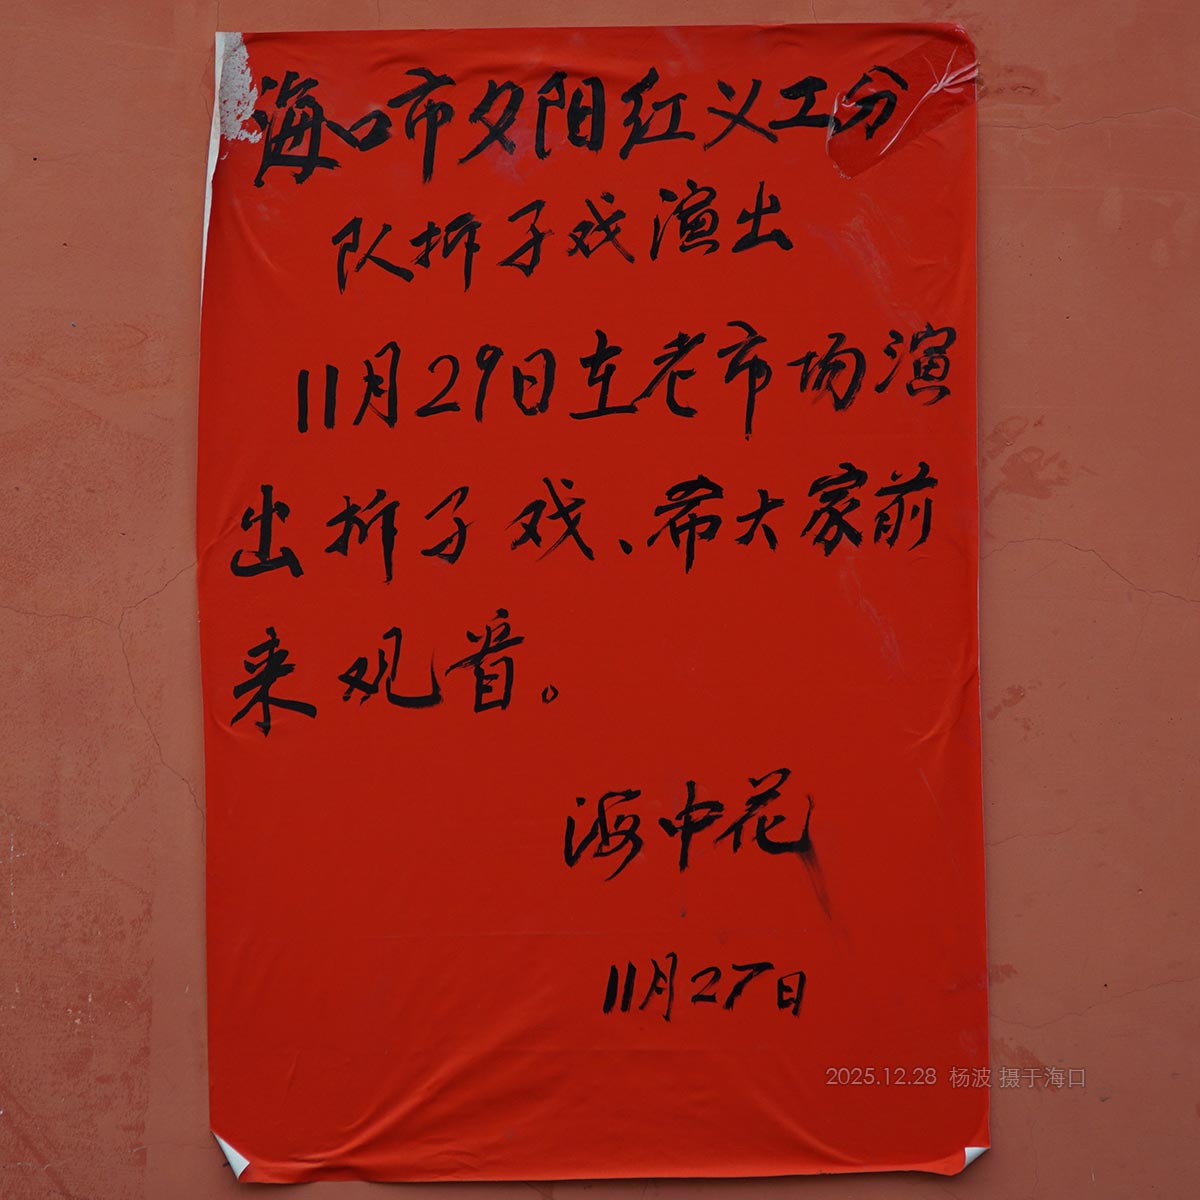 海口市夕阳红义工分
队折子戏演出
11月29日在老市场演
出折子戏、希大家前
来观看。
海中花
11月27日
2025.12.28 杨波 摄于海口